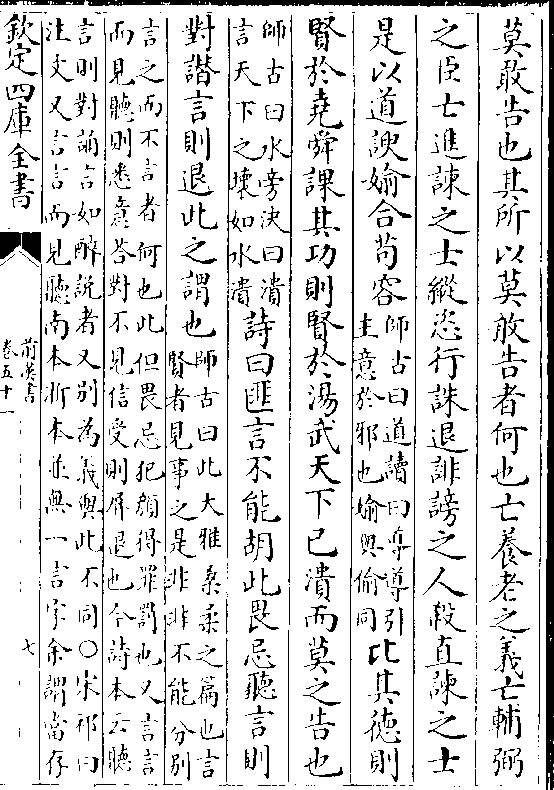 莫敢告也其所以莫敢告者何也亡養老之義亡輔弼
之臣亡進諫之士縱恣行誅退誹謗之人殺直諫之士
是以道諛媮合苟容師古曰道讀曰導導引
主意於邪也媮與偷同比其徳則
賢於堯舜課其功則賢於湯武天下已潰而莫之告也
師古曰水旁决曰潰
言天下之壞如水潰詩曰匪言不能胡此畏忌聽言則
對譖言則退此之謂也師古曰此大雅桑柔之篇也言
賢者見事之是非非不能分别
言之而不言者何也此但畏忌犯顔得罪罰也又言言
而見聽則悉意荅對不見信受則屏退也今詩本云聽
言則對誦言如醉說者又别為義與此不同○宋祁曰
注文又言言而見聽南本浙本並無一言字余謂當存
欽定四庫全書
前漢書
卷五十一
七